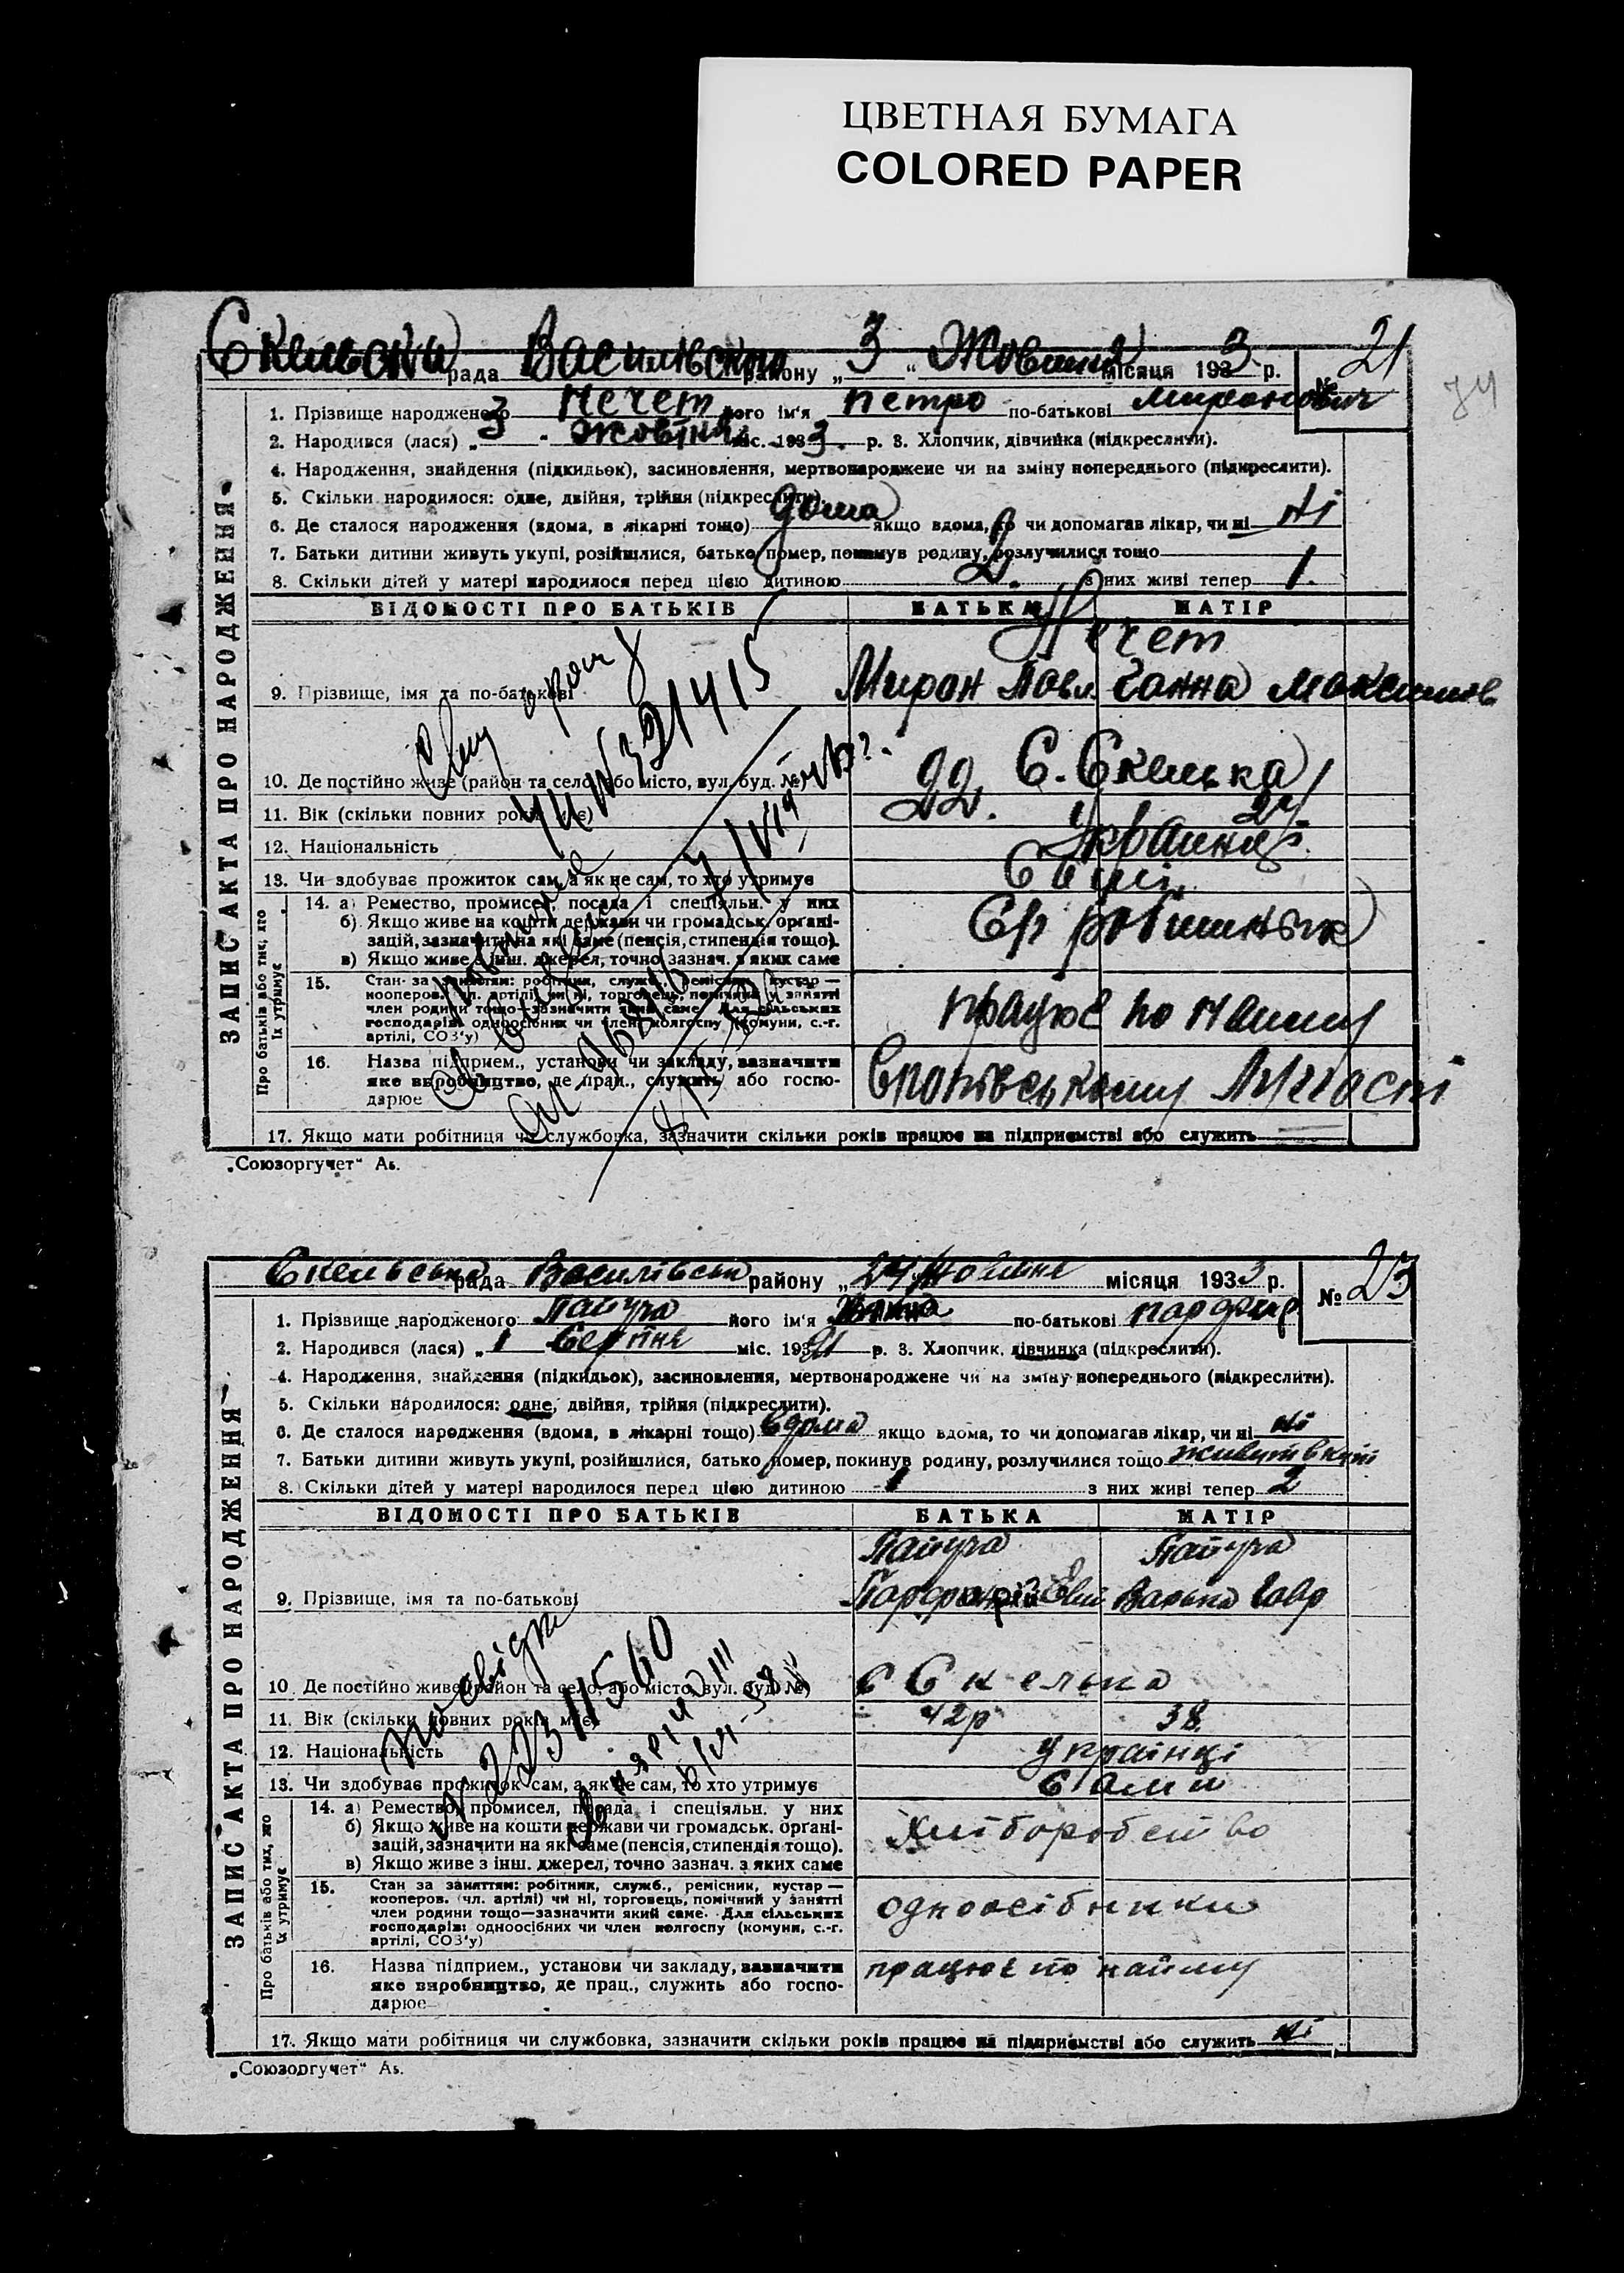 ЦВЕТНАЯ БУМАГА
COLORED PAPER
Скельська рада Василівська району „3“ Жовтня місяця 1933 р. № 21
74
ЗАПИС АКТА ПРО НАРОДЖЕННЯ
1. Прізвище народженого Нечет його ім'я Петро по-батькові Миронович
2. Народився (лася) „3“ жовтня міс. 1933 р. 3. Хлопчик, дівчинка (підкреслити).
4. Народження, знайдення (підкидьок), засиновлення, мертвонароджене чи на зміну попереднього (підкреслити).
5. Скільки народилося: одне, двійня, трійня (підкреслити).
6. Де сталося народження (вдома, в лікарні тощо) дома якщо вдома, то чи допомагав лікар, чи ні Ні
7. Батьки дитини живуть укупі, розійшлися, батько помер, покинув родину, розлучилися тощо
8. Скільки дітей у матері народилося перед цією дитиною 2. з них живі тепер 1.
ВІДОМОСТІ ПРО БАТЬКІВ БАТЬКА МАТІР
Нечет
9. Прізвище, імя та по-батькові Мирон Павл Ганна Максимов
10. Де постійно живе (район та село, або місто, вул. буд. №) С. Скелька
11. Вік (скільки повних років має) 22. 24
12. Національність Українці
13. Чи здобуває прожиток сам, а як не сам, то хто утримує Самі
Про батьків або тих, хто їх утримує
14. а) Ремество, промисел, посада і спеціяльн. у них
б) Якщо живе на кошти держави чи громадськ. організацій, зазначити на які саме (пенсія, стипендія тощо).
в) Якщо живе з інш. джерел, точно зазнач. з яких саме
15. Стан за заняттям: робітник, служб., ремісник, кустар—
кооперов. (чл. артілі) чи ні, торговець, помічний у занятті
член родини тощо—зазначити який саме. Для сільських
господарів: одноосібних чи член колгоспу (комуни, с.-г.
артілі, СОЗ'у)
працює по найму
16. Назва підприєм., установи чи закладу, зазначити
яке виробництво, де прац., служить або госпо-
дарює
17. Якщо мати робітниця чи службовка, зазначити скільки років працює на підприємстві або служить
№ 321415
„Союзоргучет“ Аь.
Скельська рада Василівська району „24“ Жовтня місяця 1933 р. № 23
ЗАПИС АКТА ПРО НАРОДЖЕННЯ
1. Прізвище народженого його ім'я по-батькові
2. Народився (лася) „1 Серпня міс. 193 р. 3. Хлопчик, дівчинка (підкреслити).
4. Народження, знайдення (підкидьок), засиновлення, мертвонароджене чи на зміну попереднього (підкреслити).
5. Скільки народилося: одне, двійня, трійня (підкреслити).
6. Де сталося народження (вдома, в лікарні тощо) вдома якщо вдома, то чи допомагав лікар, чи ні ні
7. Батьки дитини живуть укупі, розійшлися, батько помер, покинув родину, розлучилися тощо живуть вкупі
8. Скільки дітей у матері народилося перед цією дитиною 1 з них живі тепер 2
ВІДОМОСТІ ПРО БАТЬКІВ БАТЬКА МАТІР
9. Прізвище, імя та по-батькові
10. Де постійно живе (район та село, або місто, вул. буд. №) С Скелька
11. Вік (скільки повних років має) 42р 38
12. Національність українці
13. Чи здобуває прожиток сам, а як не сам, то хто утримує сами
Про батьків або тих, хто їх утримує
14. а) Ремество, промисел, посада і спеціяльн. у них
б) Якщо живе на кошти держави чи громадськ. організацій, зазначити на які саме (пенсія, стипендія тощо).
в) Якщо живе з інш. джерел, точно зазнач. з яких саме
хліборобство
15. Стан за заняттям: робітник, служб., ремісник, кустар—
кооперов. (чл. артілі) чи ні, торговець, помічний у занятті
член родини тощо—зазначити який саме. Для сільських
господарів: одноосібних чи член колгоспу (комуни, с.-г.
артілі, СОЗ'у)
одноосібники
16. Назва підприєм., установи чи закладу, зазначити
яке виробництво, де прац., служить або госпо-
дарює
працює по найму
17. Якщо мати робітниця чи службовка, зазначити скільки років працює на підприємстві або служить ні
„Союзоргучет“ Аь.